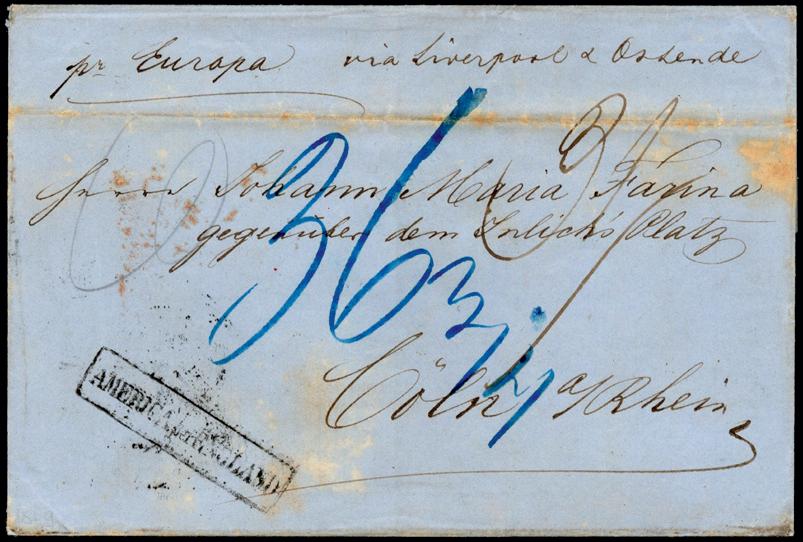 pr Europa via Liverpool & Ostende
Herrn Johann Maria Farina
gegenüber dem Jülich's Platz
Cöln a/Rhein
36
3/
AMERICA per ENGLAND